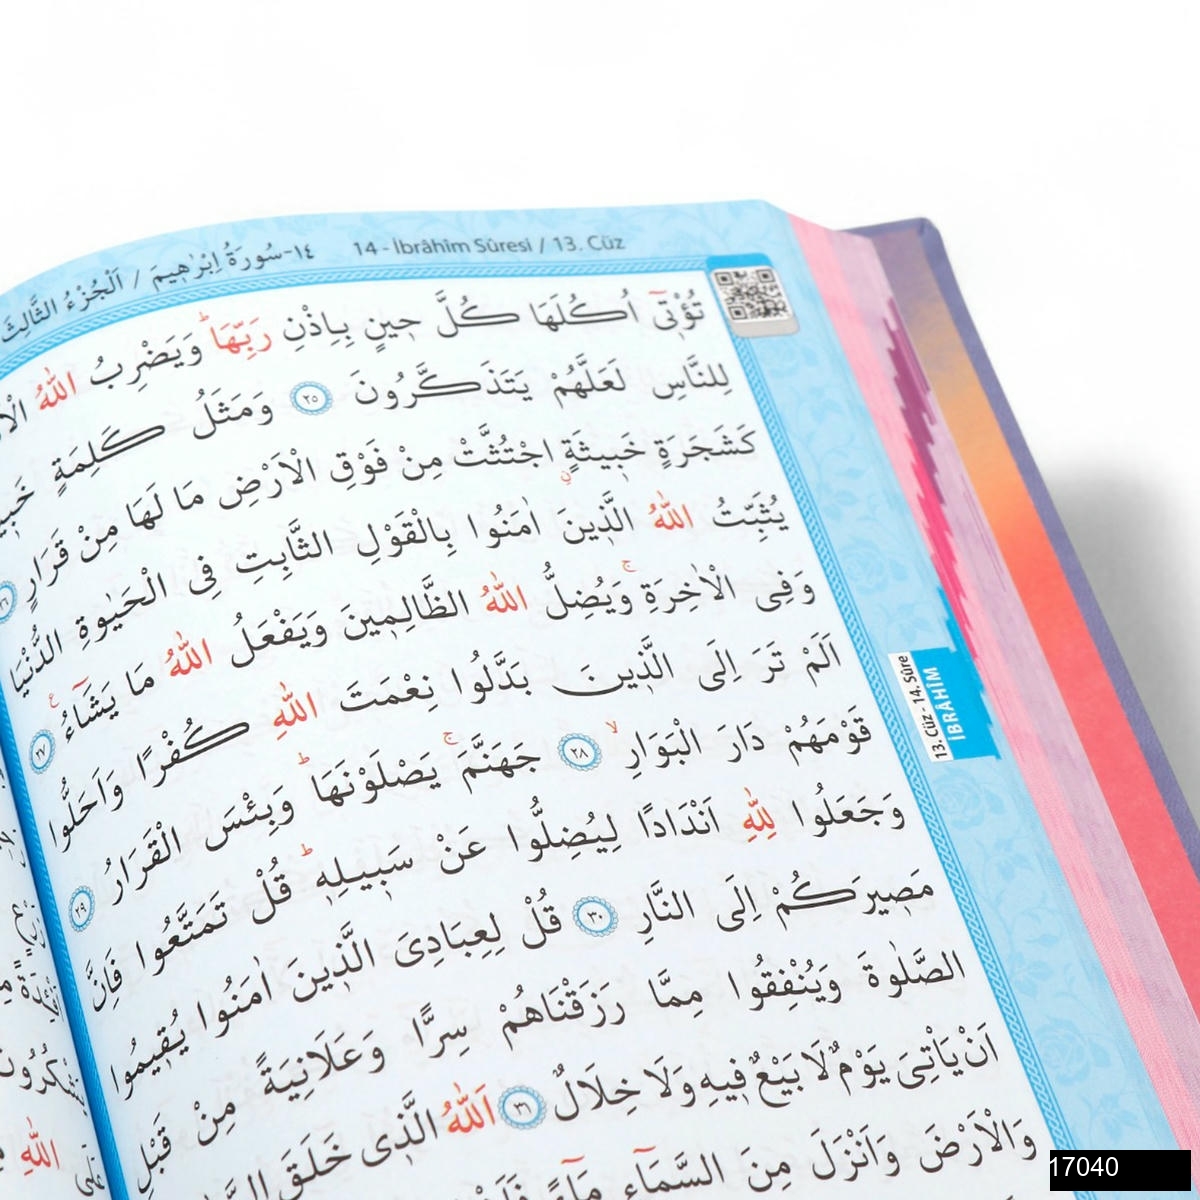 ١٤-سُورَةُ اِبْرٰه۪يمَ / اَلْجُزْءُ الثَّالِثَ
14 - İbrâhîm Sûresi / 13. Cüz
تُؤْت۪ٓى اُكُلَهَا كُلَّ ح۪ينٍ بِاِذْنِ رَبِّهَاۜ وَيَضْرِبُ اللّٰهُ
لِلنَّاسِ لَعَلَّهُمْ يَتَذَكَّرُونَ ٢٥ وَمَثَلُ كَلِمَةٍ
كَشَجَرَةٍ خَب۪يثَةٍۨ اجْتُثَّتْ مِنْ فَوْقِ الْاَرْضِ مَا لَهَا مِنْ قَرَارٍ
يُثَبِّتُ اللّٰهُ الَّذ۪ينَ اٰمَنُوا بِالْقَوْلِ الثَّابِتِ فِى الْحَيٰوةِ الدُّنْيَا
وَفِى الْاٰخِرَةِۚ وَيُضِلُّ اللّٰهُ الظَّالِم۪ينَ وَيَفْعَلُ اللّٰهُ مَا يَشَٓاءُ۟ ٢٧
اَلَمْ تَرَ اِلَى الَّذ۪ينَ بَدَّلُوا نِعْمَتَ اللّٰهِ كُفْرًا وَاَحَلُّوا
قَوْمَهُمْ دَارَ الْبَوَارِۙ ٢٨ جَهَنَّمَۚ يَصْلَوْنَهَاۜ وَبِئْسَ الْقَرَارُ ٢٩
وَجَعَلُوا لِلّٰهِ اَنْدَادًا لِيُضِلُّوا عَنْ سَب۪يلِه۪ۜ قُلْ تَمَتَّعُوا فَاِنَّ
مَص۪يرَكُمْ اِلَى النَّارِ ٣٠ قُلْ لِعِبَادِىَ الَّذ۪ينَ اٰمَنُوا يُق۪يمُوا
الصَّلٰوةَ وَيُنْفِقُوا مِمَّا رَزَقْنَاهُمْ سِرًّا وَعَلَانِيَةً مِنْ قَبْلِ
اَنْ يَأْتِىَ يَوْمٌ لَا بَيْعٌ ف۪يهِ وَلَا خِلَالٌ ٣١ اَللّٰهُ الَّذ۪ى خَلَقَ
وَالْاَرْضَ وَاَنْزَلَ مِنَ السَّمَٓاءِ مَٓاءً
13. Cüz - 14. Sûre
İBRÂHÎM
17040